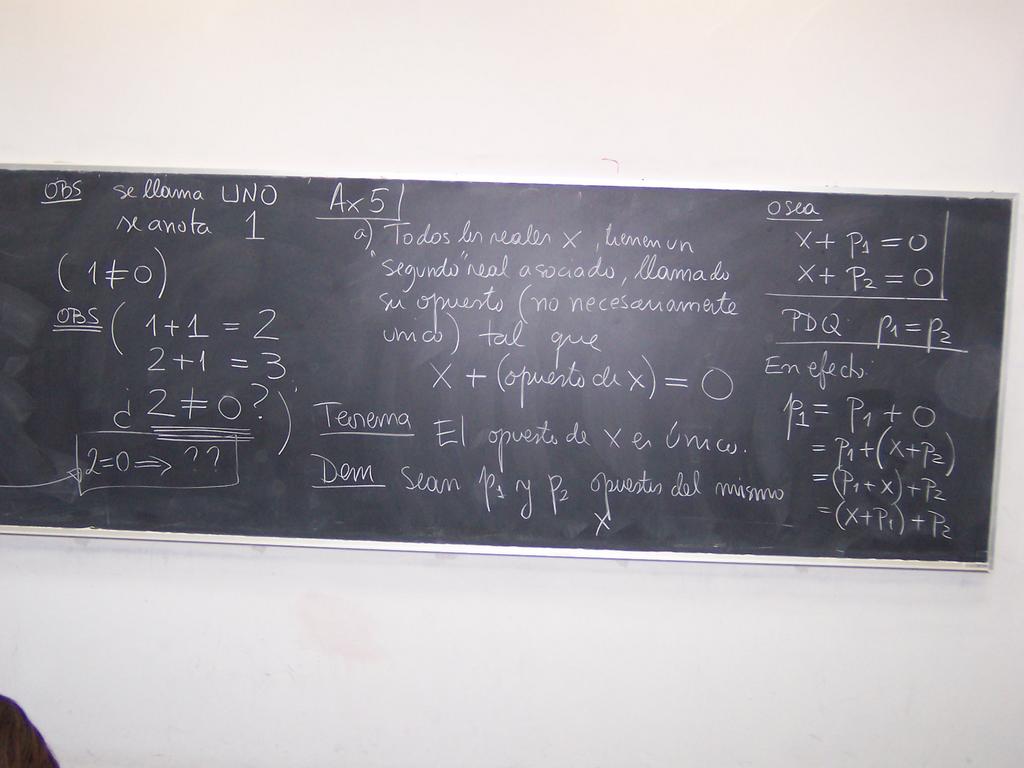 OBS se llama UNO
se anota 1
(1≠0)
OBS (1+1 = 2
2+1 = 3
¿ 2 ≠ 0 ?)
2=0 ⇒ ??
Ax 5
a) Todos los reales x, tienen un
"segundo" real asociado, llamado
su opuesto (no necesariamente
unico) tal que
x + (opuesto de x) = 0
Teorema El opuesto de x es Único.
Dem Sean p₁ y p₂ opuestos del mismo
x
osea
x + p₁ = 0
x + p₂ = 0
PDQ p₁ = p₂
En efecto:
p₁ = p₁ + 0
= p₁ + (x+p₂)
= (p₁+x) + p₂
= (x+p₁) + p₂